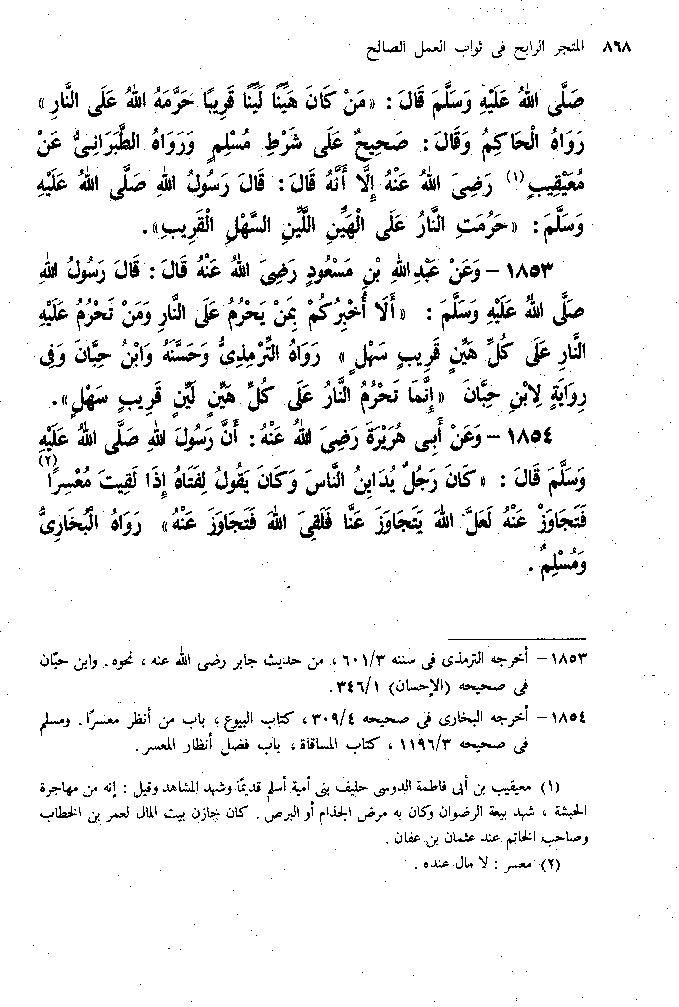 ٨٦٨ المتجر الرابح فى ثواب العمل الصالح
صَلَّى اللهُ عَلَيْهِ وَسَلَّمَ قَالَ : «مَنْ كَانَ هَيِّنًا لَيِّنًا قَرِيبًا حَرَّمَهُ اللهُ عَلَى النَّارِ»
رَوَاهُ الْحَاكِمُ وَقَالَ : صَحِيحٌ عَلَى شَرْطِ مُسْلِمٍ وَرَوَاهُ الطَّبَرَانِىُّ عَنْ
مُعَيْقِيبٍ(١) رَضِىَ اللهُ عَنْهُ إِلَّا أَنَّهُ قَالَ : قَالَ رَسُولُ اللهِ صَلَّى اللهُ عَلَيْهِ
وَسَلَّمَ : «حَرُمَتِ النَّارُ عَلَى الْهَيِّنِ اللَّيِّنِ السَّهْلِ الْقَرِيبِ» .
١٨٥٣ – وَعَنْ عَبْدِ اللهِ بْنِ مَسْعُودٍ رَضِىَ اللهُ عَنْهُ قَالَ : قَالَ رَسُولُ اللهِ
صَلَّى اللهُ عَلَيْهِ وَسَلَّمَ : «أَلَا أُخْبِرُكُمْ بِمَنْ يَحْرُمُ عَلَى النَّارِ وَمَنْ تَحْرُمُ عَلَيْهِ
النَّارِ عَلَى كُلِّ هَيِّنٍ قَرِيبٍ سَهْلٍ» رَوَاهُ التِّرْمِذِىُّ وَحَسَّنَهُ وَابْنُ حِبَّانَ وَفِى
رِوَايَةٍ لِابْنِ حِبَّانَ «إِنَّمَا تَحْرُمُ النَّارُ عَلَى كُلِّ هَيِّنٍ لَيِّنٍ قَرِيبٍ سَهْلٍ» .
١٨٥٤ – وَعَنْ أَبِى هُرَيْرَةَ رَضِىَ اللهُ عَنْهُ : أَنَّ رَسُولَ اللهِ صَلَّى اللهُ عَلَيْهِ
وَسَلَّمَ قَالَ : «كَانَ رَجُلٌ يُدَايِنُ النَّاسَ وَكَانَ يَقُولُ لِفَتَاهُ إِذَا لَقِيتَ مُعْسِرًا(٢)
فَتَجَاوَزْ عَنْهُ لَعَلَّ اللهَ يَتَجَاوَزَ عَنَّا فَلَقِىَ اللهَ فَتَجَاوَزَ عَنْهُ» رَوَاهُ الْبُخَارِىُّ
وَمُسْلِمٌ .
١٨٥٣ – أخرجه الترمذى فى سننه ٦٠١/٣ ، من حديث جابر رضى الله عنه ، نحوه . وابن حبّان
فى صحيحه (الإحسان) ٣٤٦/١ .
١٨٥٤ – أخرجه البخارى فى صحيحه ٣٠٩/٤ ، كتاب البيوع ، باب من أنظر معسرًا . ومسلم
فى صحيحه ١١٩٦/٣ ، كتاب المساقاة ، باب فضل أنظار المعسر .
(١) معيقيب بن أبى فاطمة الدوسى حليف بنى أمية أسلم قديمًا وشهد المشاهد وقيل : إنه من مهاجرة
الحبشة ، شهد بيعة الرضوان وكان به مرض الجذام أو البرص . كان خازن بيت المال لعمر بن الخطاب
وصاحب الخاتم عند عثمان بن عفان .
(٢) معسر : لا مال عنده .